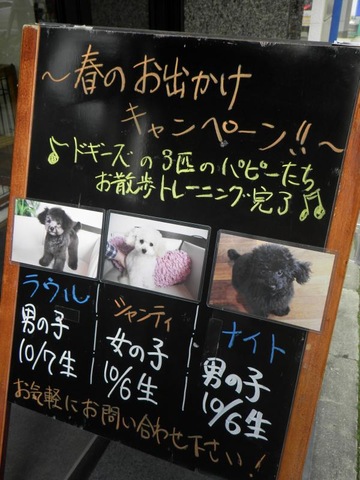 ～春のお出かけ
キャンペーン!!～
♪ドギーズの3匹のパピーたち
お散歩トレーニング完了♫
ラウル
男の子
10/7生
シャンティ
女の子
10/6生
ナイト
男の子
10/6生
お気軽にお問い合わせ下さい!